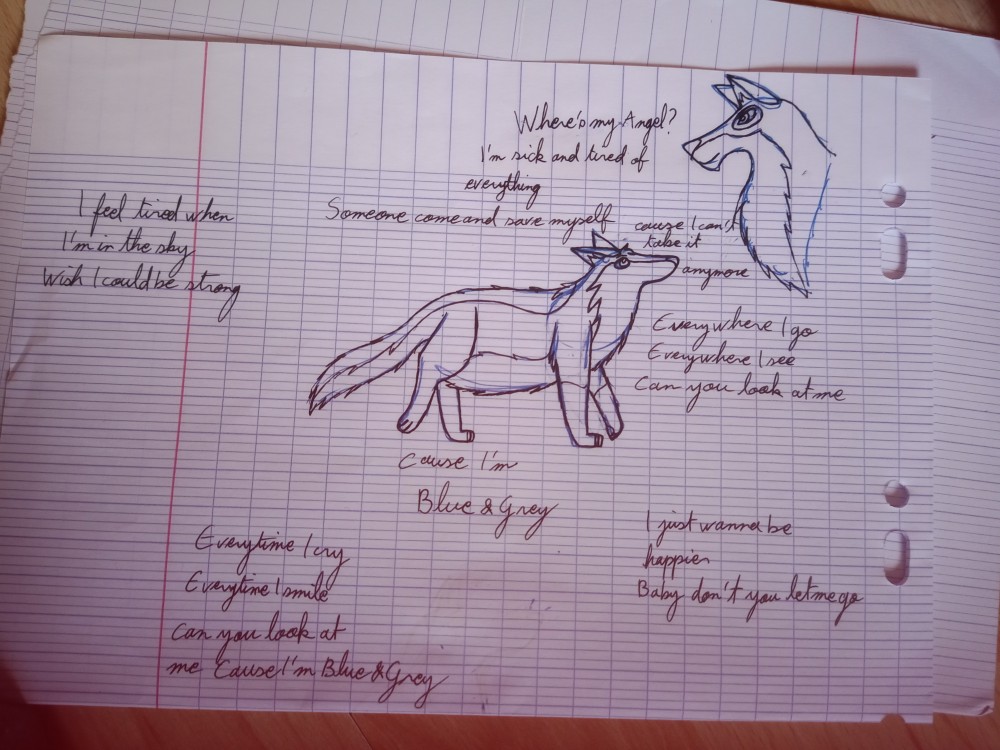 Where's my Angel?
I'm sick and tired of
everything
Someone come and save myself
cause I can't
take it
anymore
I feel tired when
I'm in the sky
Wish I could be strong
Everywhere I go
Everywhere I see
Can you look at me
Cause I'm
Blue & Grey
Everytime I cry
Everytime I smile
Can you look at
me Cause I'm Blue & Grey
I just wanna be
happier
Baby don't you let me go